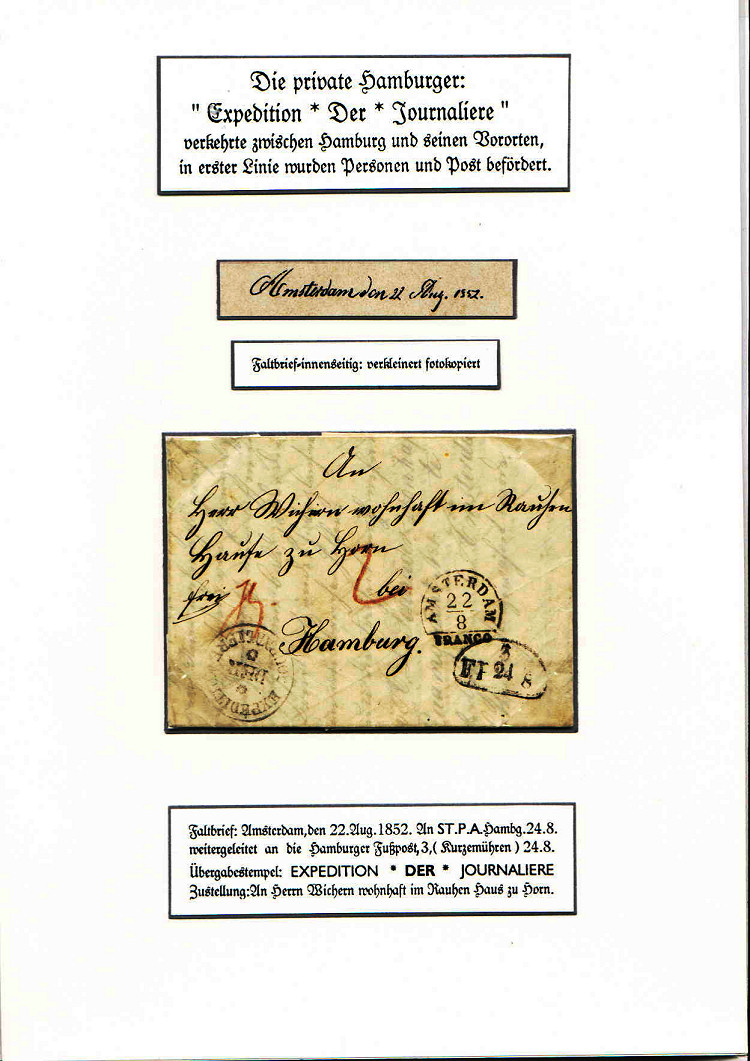 Die private Hamburger:
" Expedition * Der * Journaliere "
verkehrte zwischen Hamburg und seinen Vororten,
in erster Linie wurden Personen und Post befördert.
Amsterdam den 22 Aug. 1852.
Faltbrief-innenseitig: verkleinert fotokopiert
An
Herr Wichern wohnhaft im Rauhen
Hause zu Horn
frei
bei
Hamburg.
AMSTERDAM
22
8
FRANCO
3
24 8
EXPEDITION
DER
JOURNALIERE
Faltbrief: Amsterdam,den 22.Aug.1852. An ST.P.A.Hambg.24.8.
weitergeleitet an die Hamburger Fußpost,3,( Kurzemühren ) 24.8.
Übergabestempel: EXPEDITION * DER * JOURNALIERE
Zustellung:An Herrn Wichern wohnhaft im Rauhen Haus zu Horn.